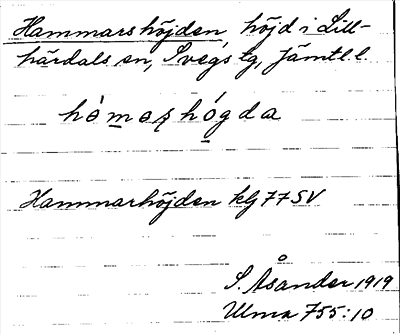 Hammarshöjden, höjd i Lill-
härdals sn, Svegs tg, Jämtl.l.
hàmaʂhógda
Hammarhöjden klj 77 SV
S. Åsander 1919
Ulma 755:10